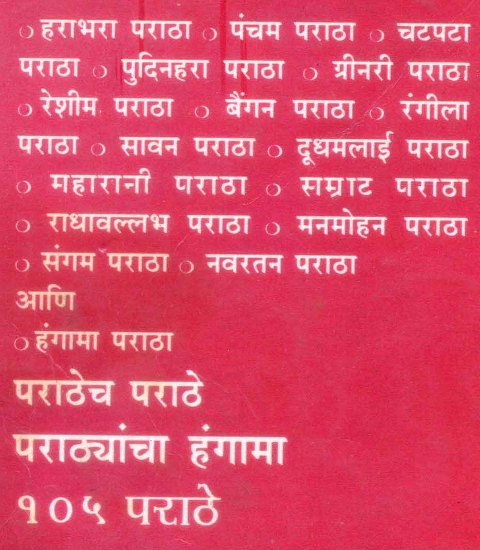 ○ हराभरा पराठा ○ पंचम पराठा ○ चटपटा
पराठा ○ पुदिनहरा पराठा ○ ग्रीनरी पराठा
○ रेशीम पराठा ○ बैंगन पराठा ○ रंगीला
पराठा ○ सावन पराठा ○ दूधमलाई पराठा
○ महारानी पराठा ○ सम्राट पराठा
○ राधावल्लभ पराठा ○ मनमोहन पराठा
○ संगम पराठा ○ नवरतन पराठा
आणि
○ हंगामा पराठा
पराठेच पराठे
पराठ्यांचा हंगामा
१०५ पराठे